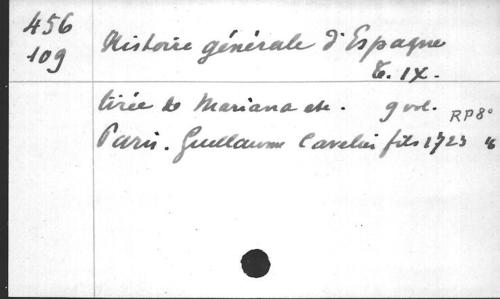 456
109
Histoire générale d'Espagne
T. IX.
tirée de Mariana etc. 9 vol.
RP 8°
Paris. Guillaume Cavelier fils 1723